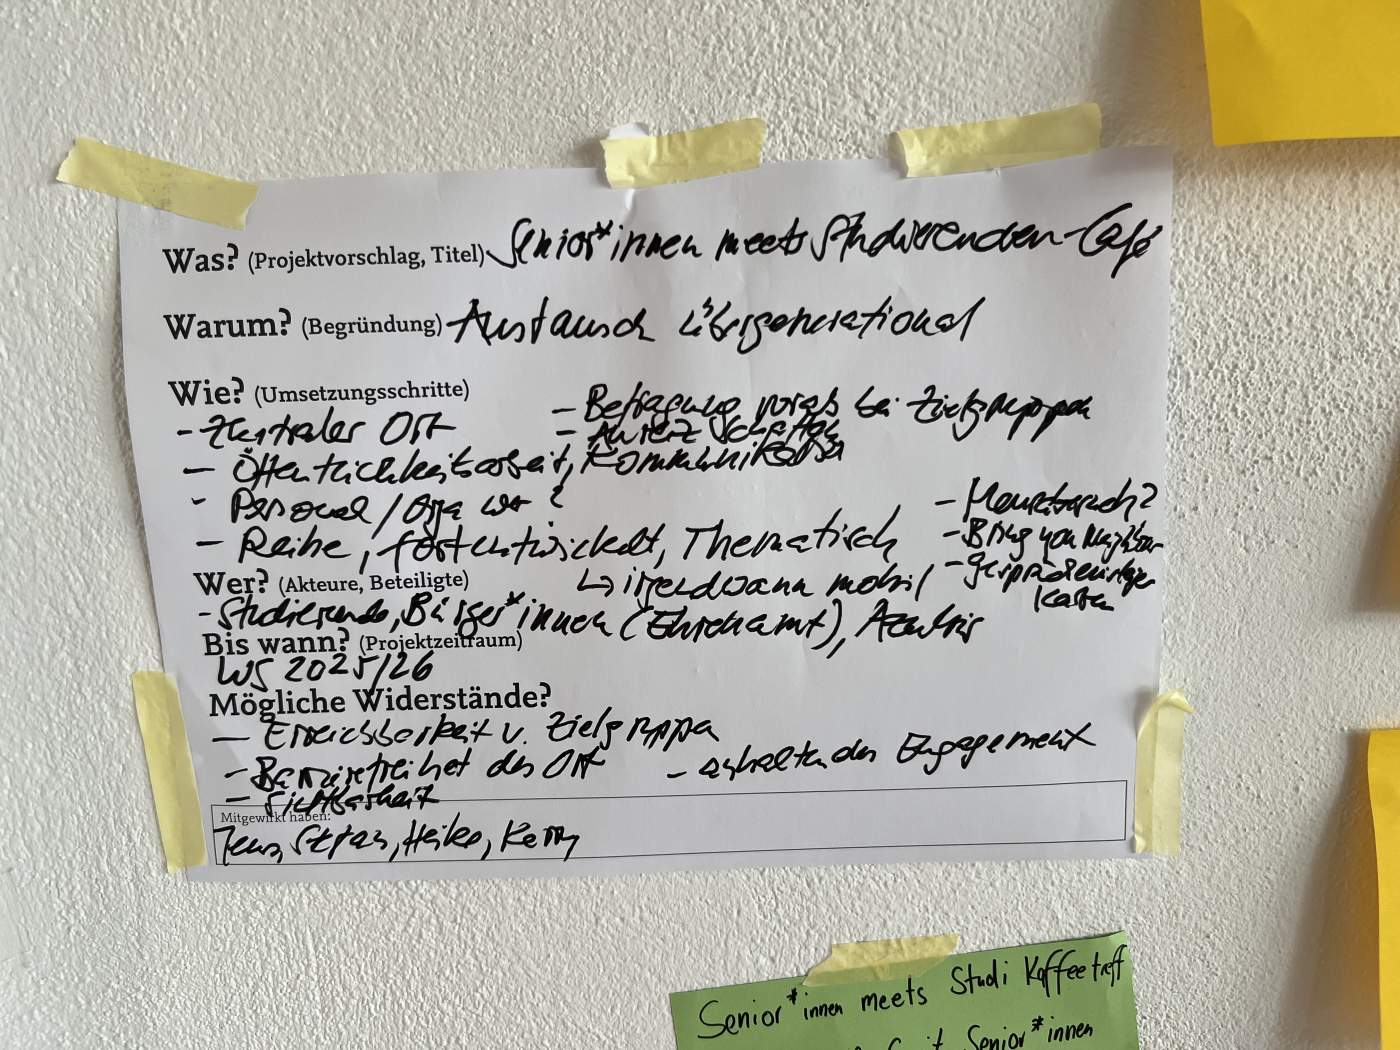 Was? (Projektvorschlag, Titel) Senior*innen meets Studierenden-Café
Warum? (Begründung) Austausch übergenerational
Wie? (Umsetzungsschritte)
- Zentraler Ort
- Befragung vorab bei Zielgruppen
- Anreiz schaffen
- Öffentlichkeitsarbeit, Kommunikation
- Personal / Orga wer?
- Reihe, fortentwickelt, Thematisch
↳ irgendwann mobil
-
- Bring your Neighbor
- Karten
Wer? (Akteure, Beteiligte)
- Studierende, Bürger*innen (Ehrenamt), Azubis
Bis wann? (Projektzeitraum)
WS 2025/26
Mögliche Widerstände?
- Erreichbarkeit v. Zielgruppen
- Barrierefreiheit des Ort
- Sichtbarkeit
- anhaltendes Engagement
Mitgewirkt haben:
Heike,
Senior*innen meets Studi Kaffeetreff
Senior*innen